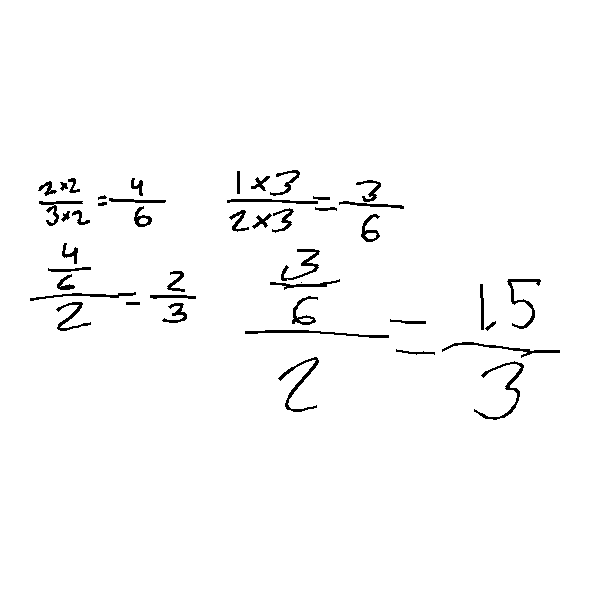 2×2/3×2 = 4/6
1×3/2×3 = 3/6
(4/6)/2 = 2/3
(3/6)/2 = 1.5/3